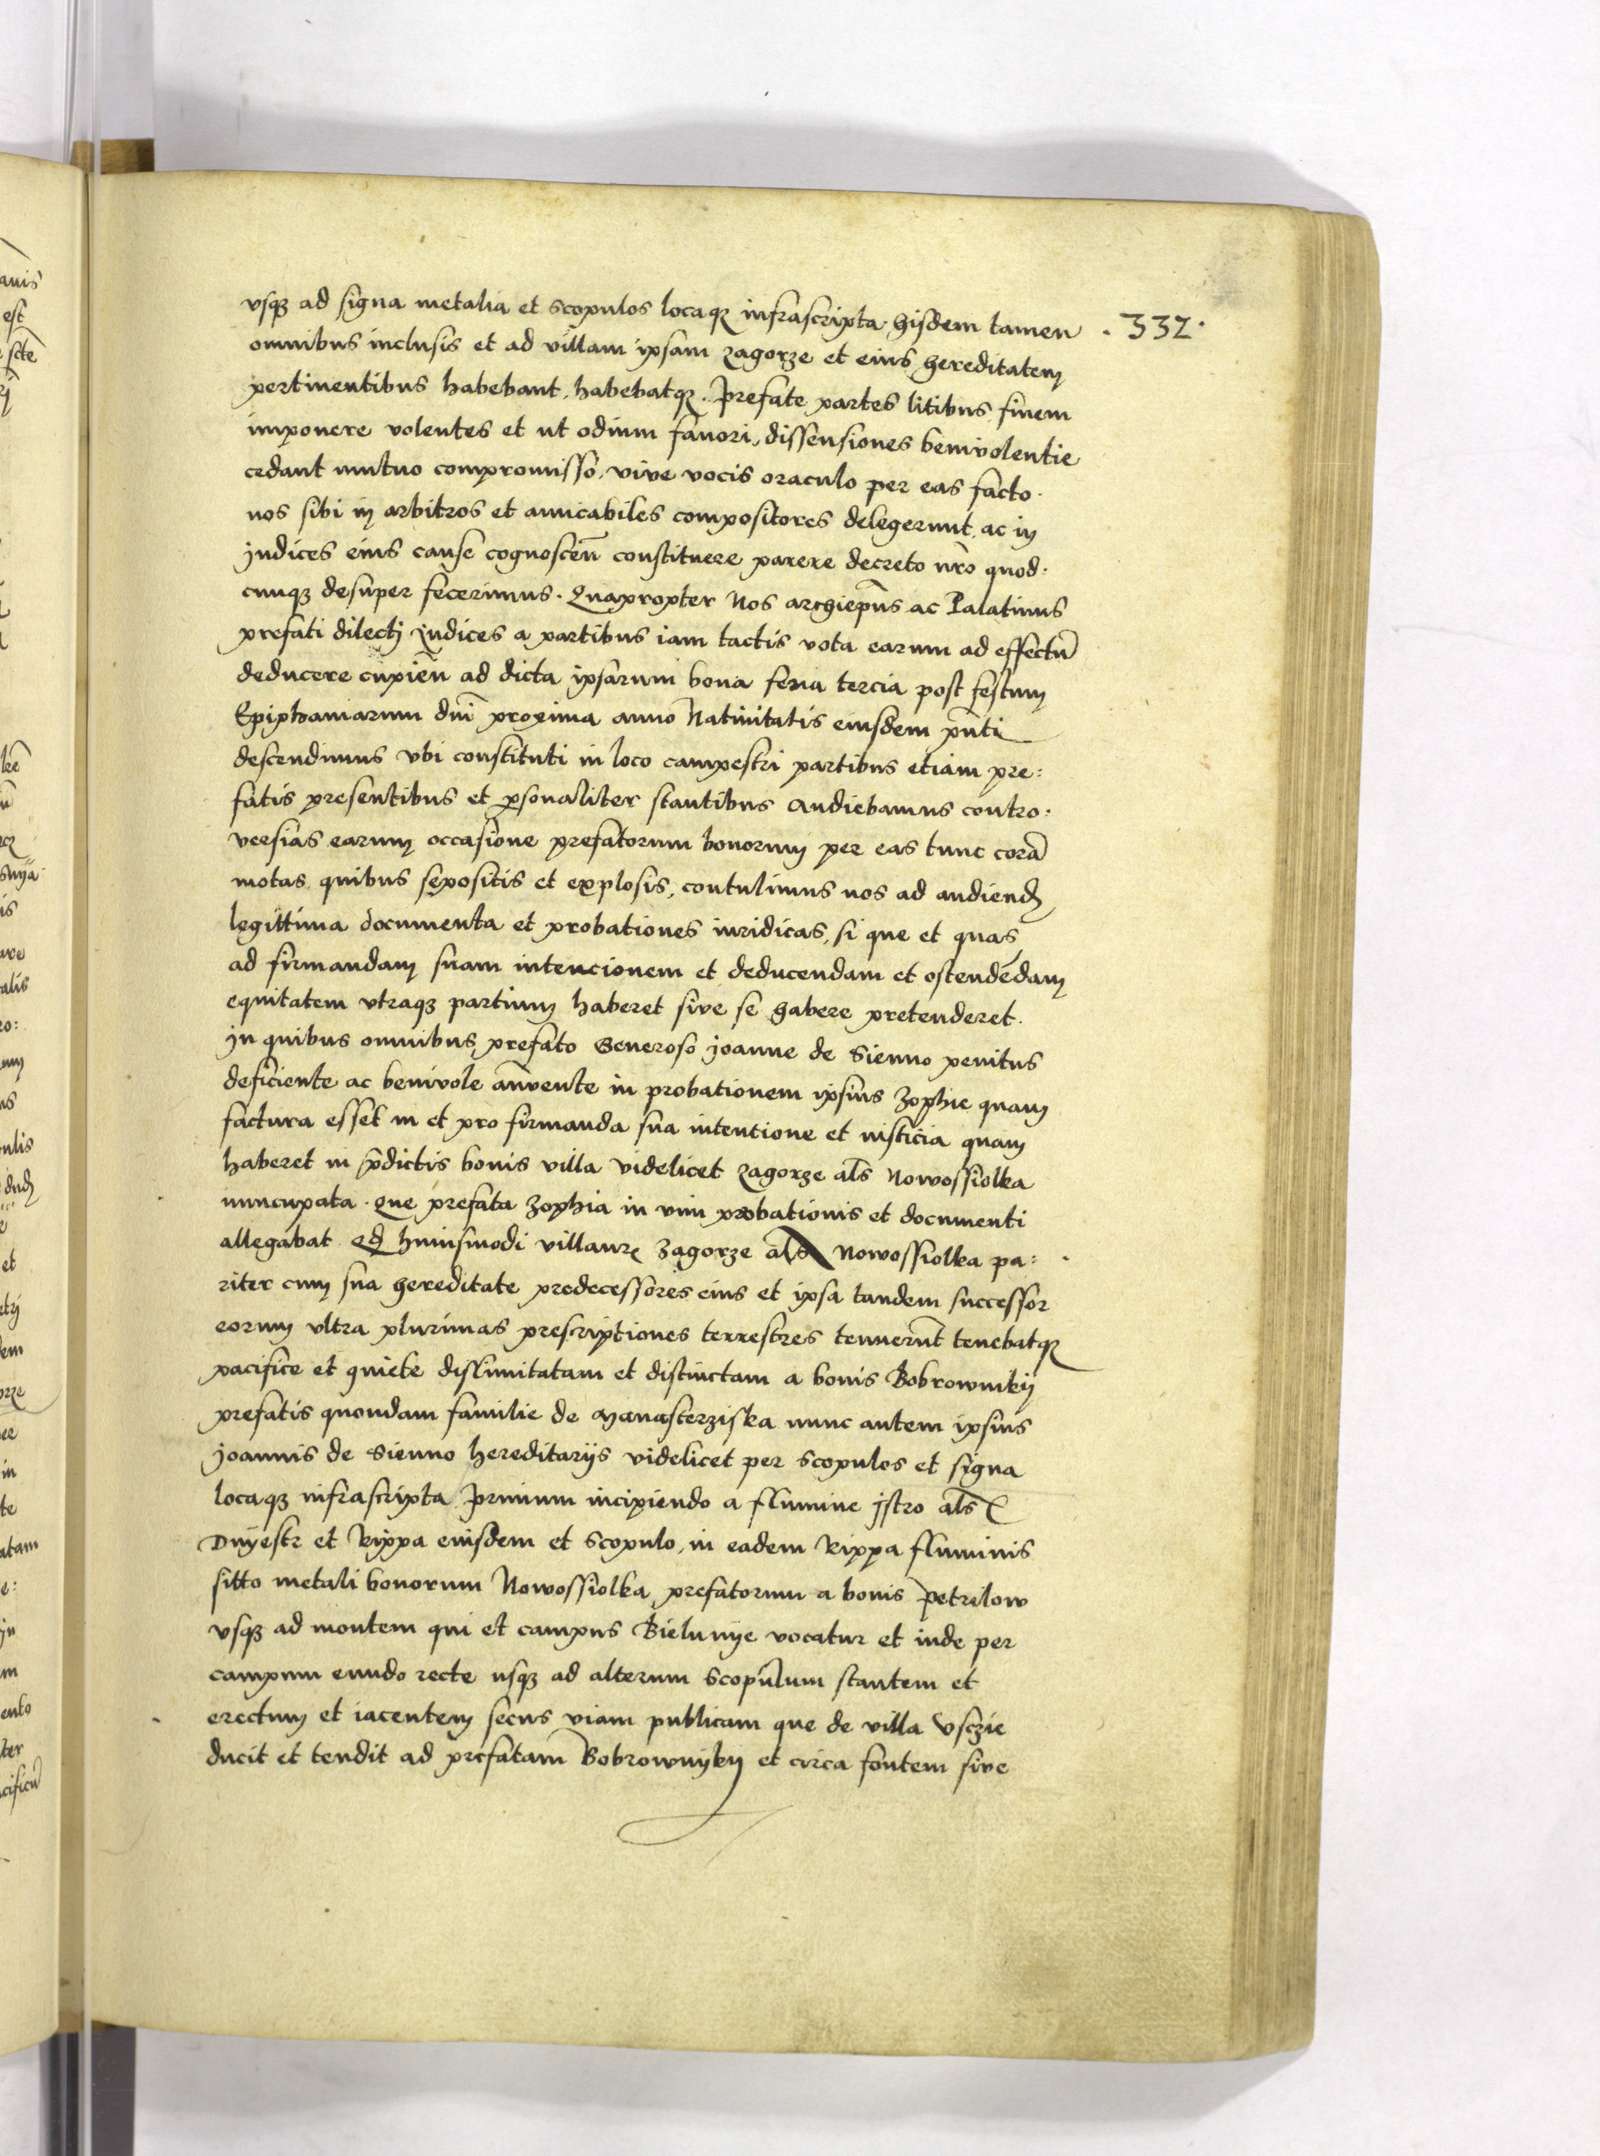 .332.
vsqz ad signa metalia et scopulos locaqz infrascripta hisdem tamen
omnibus inclusis et ad villam ipsam zagorze et eius hereditatem
pertinentibus habebant, habebatqz. Prefate partes litibus finem
imponere volentes et ut odium fauori, dissensiones beniuolentie
cedant mutuo compromisso, vive vocis oraculo per eas facto.
nos sibi in arbitros et amicabiles compositores delegerunt, ac in
judices eius cause cognoscen̄ constituere parere decreto nr̄o quod.
cunqz desuper fecerimus. Quapropter Nos archiep̄us ac Palatinus
prefati dilecti judices a partibus iam tactis vota earum ad effectū
deducere cupien̄ ad dicta ipsarum bona feria tercia post festum
Epiphaniarum dn̄i proxima anno Natiuitatis eiusdem pn̄ti
descendimus vbi constituti in loco campestri partibus etiam pre:
fatis presentibus et psonaliter stantibus Audiebamus contro:
versias earum occasione prefatorum bonorum per eas tunc corā
motas, quibus sepositis et explosis, contulimus nos ad audiend
legittima documenta et probationes iuridicas, si que et quas
ad firmandam suam intencionem et deducendam et ostendēdam
equitatem vtraqz partium haberet sive se habere pretenderet.
jn quibus omnibus prefato Generoso joanne de Sienno penitus
deficiente ac benivole an̄vente in probationem ipsius Zophie quam
factura esset in et pro firmanda sua intentione et iusticia quam
haberet in p̄dictis bonis villa videlicet zagorze al̄s Nowossiolka
nuncupata. Que prefata Zophia in vim probationis et documenti
allegabat qd huiusmodi villam Zagorze als Nowossiolka pa:
riter cum sua hereditate predecessores eius et ipsa tandem successor
eorum vltra plurimas prescriptiones terrestres tenuerūt tenebatqz
pacifice et quiete dislimitatam et distinctam a bonis Bobrowniky
prefatis quondam familie de Manasterziska nunc autem ipsius
joannis de Sienno hereditarijs videlicet per scopulos et signa
locaqz infrascripta, Primum incipiendo a flumine jstro al̄s
Dnyestr et Rippa eiusdem et scopulo, in eadem Rippa fluminis
sitto metali bonorum Nowossiolka prefatorum a bonis Petrilow
vsqz ad montem qui et campus Bielunye vocatur et inde per
campum eundo recte usqz ad alterum scopulum stantem et
erectum et iacentem secus viam publicam que de villa Vsczie
ducit et tendit ad prefatam Bobrownyky et circa fontem sive